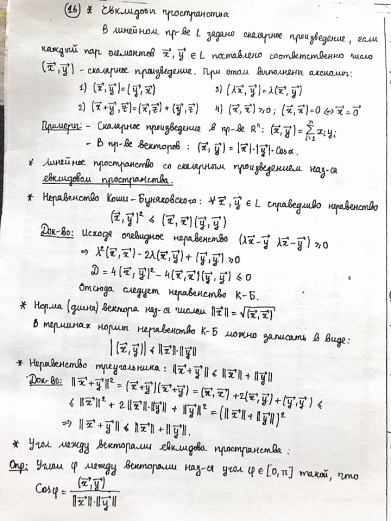 (16) * Евклидовы пространства
В линейном пр-ве L задано скалярное произведение, если
каждый пар элементов x⃗, y⃗ ∈ L поставлено соответственно число
(x⃗, y⃗) - скалярное произведение. При этом выполнены аксиомы:
1) (x⃗, y⃗) = (y⃗, x⃗) 3) (λx⃗, y⃗) = λ(x⃗, y⃗)
2) (x⃗+y⃗, z⃗) = (x⃗, z⃗) + (y⃗, z⃗) 4) (x⃗, x⃗) ≥ 0; (x⃗, x⃗) = 0 ⇔ x⃗ = 0⃗
Примеры: - Скалярное произведение в пр-ве Rⁿ: (x⃗, y⃗) = ∑ⁿᵢ₌₁ xᵢyᵢ
- В пр-ве векторов: (x⃗, y⃗) = |x⃗|·|y⃗|·Cosα.
* Линейное пространство со скалярным произведением наз-ся
евклидовым пространства.
* Неравенство Коши-Буняковского: ∀ x⃗, y⃗ ∈ L справедливо неравенство
(x⃗, y⃗)² ≤ (x⃗, x⃗)(y⃗, y⃗)
Док-во: Исходя очевидное неравенство (λx⃗-y⃗ λx⃗-y⃗) ≥ 0
⇒ λ²(x⃗, x⃗) - 2λ(x⃗, y⃗) + (y⃗, y⃗) ≥ 0
D = 4(x⃗, y⃗)² - 4(x⃗, x⃗)(y⃗, y⃗) ≤ 0
Отсюда следует неравенство К-Б.
* Норма (длина) вектора наз-ся числом ‖x⃗‖ = √(x⃗, x⃗)
В терминах нормы неравенство К-Б можно записать в виде:
|(x⃗, y⃗)| ≤ ‖x⃗‖·‖y⃗‖
* Неравенство треугольника: ‖x⃗+y⃗‖ ≤ ‖x⃗‖ + ‖y⃗‖
Док-во: ‖x⃗+y⃗‖² = (x⃗+y⃗)(x⃗+y⃗) = (x⃗, x⃗) + 2(x⃗, y⃗) + (y⃗, y⃗) ≤
≤ ‖x⃗‖² + 2‖x⃗‖·‖y⃗‖ + ‖y⃗‖² = (‖x⃗‖ + ‖y⃗‖)²
⇒ ‖x⃗+y⃗‖ ≤ ‖x⃗‖ + ‖y⃗‖.
* Угол между векторами евклидова пространства:
Опр: Углом φ между векторами наз-ся угол φ ∈ [0, π] такой, что
Cosφ = (x⃗, y⃗) / ‖x⃗‖·‖y⃗‖